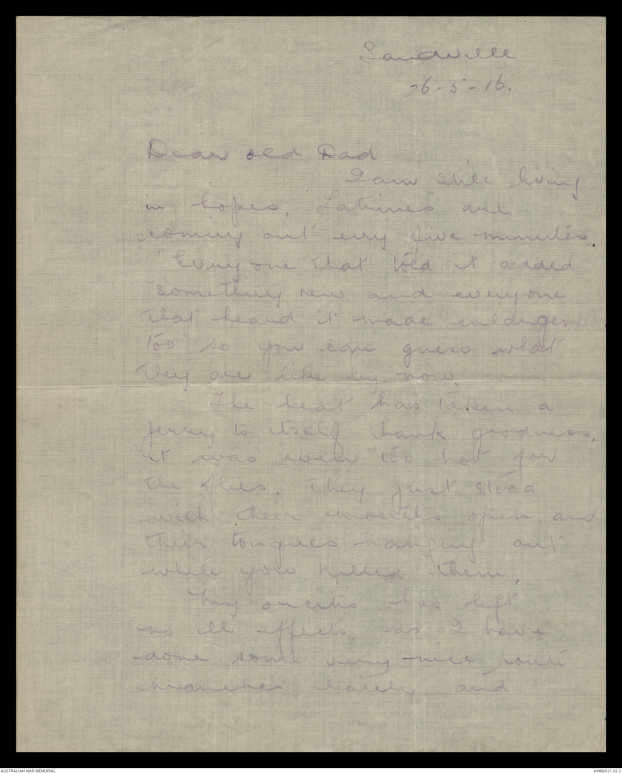 Sandville
26-5-16.
Dear old Dad
I am still living
in hopes. Latrines are
coming out every five minutes,
"Every one that told it added
something new and everyone
that heard it made enlargements
too" so you can guess what
they are like by now.
The heat has taken a
jerry to itself thank goodness,
it was even too hot for
the flies. They just stood
with their mouths open and
their tongues hanging out
while you killed them.
My has left
no ill effects, as I have
done some very nice route
marches lately and
AUSTRALIAN WAR MEMORIAL